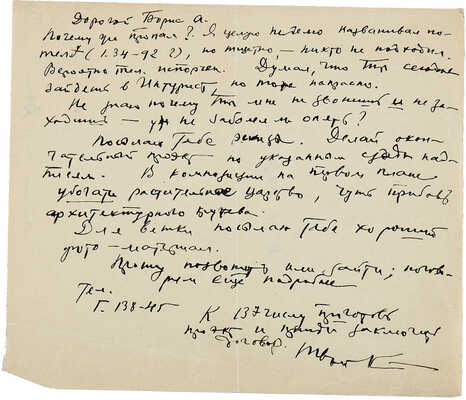 Дорогой Борис А.
Почему ты пропал? Я целую неделю названивал по
тел. (1.34-92 ?), но тщетно, – никто не подходил.
Вероятно тел. испорчен. Думал, что Ты сегодня
зайдешь в Интурист, но тоже напрасно.
Не знаю почему Ты мне не звонишь и не за-
ходишь – уж не заболел ли опять?
Посылаю Тебе Делай окон-
чательный проект по указанным сюда над-
писям. В композиции на первом плане
убогати растительное царство, чуть прибавь
архитектурного кружева.
Для ветки посылаю Тебе хороший
фото-материал.
Прошу позвонить или зайти; погово-
рим ещё подробнее
Тел.
Г. 138-45
К 13 числу приготовь
проект и приди заключить
договор. Твой